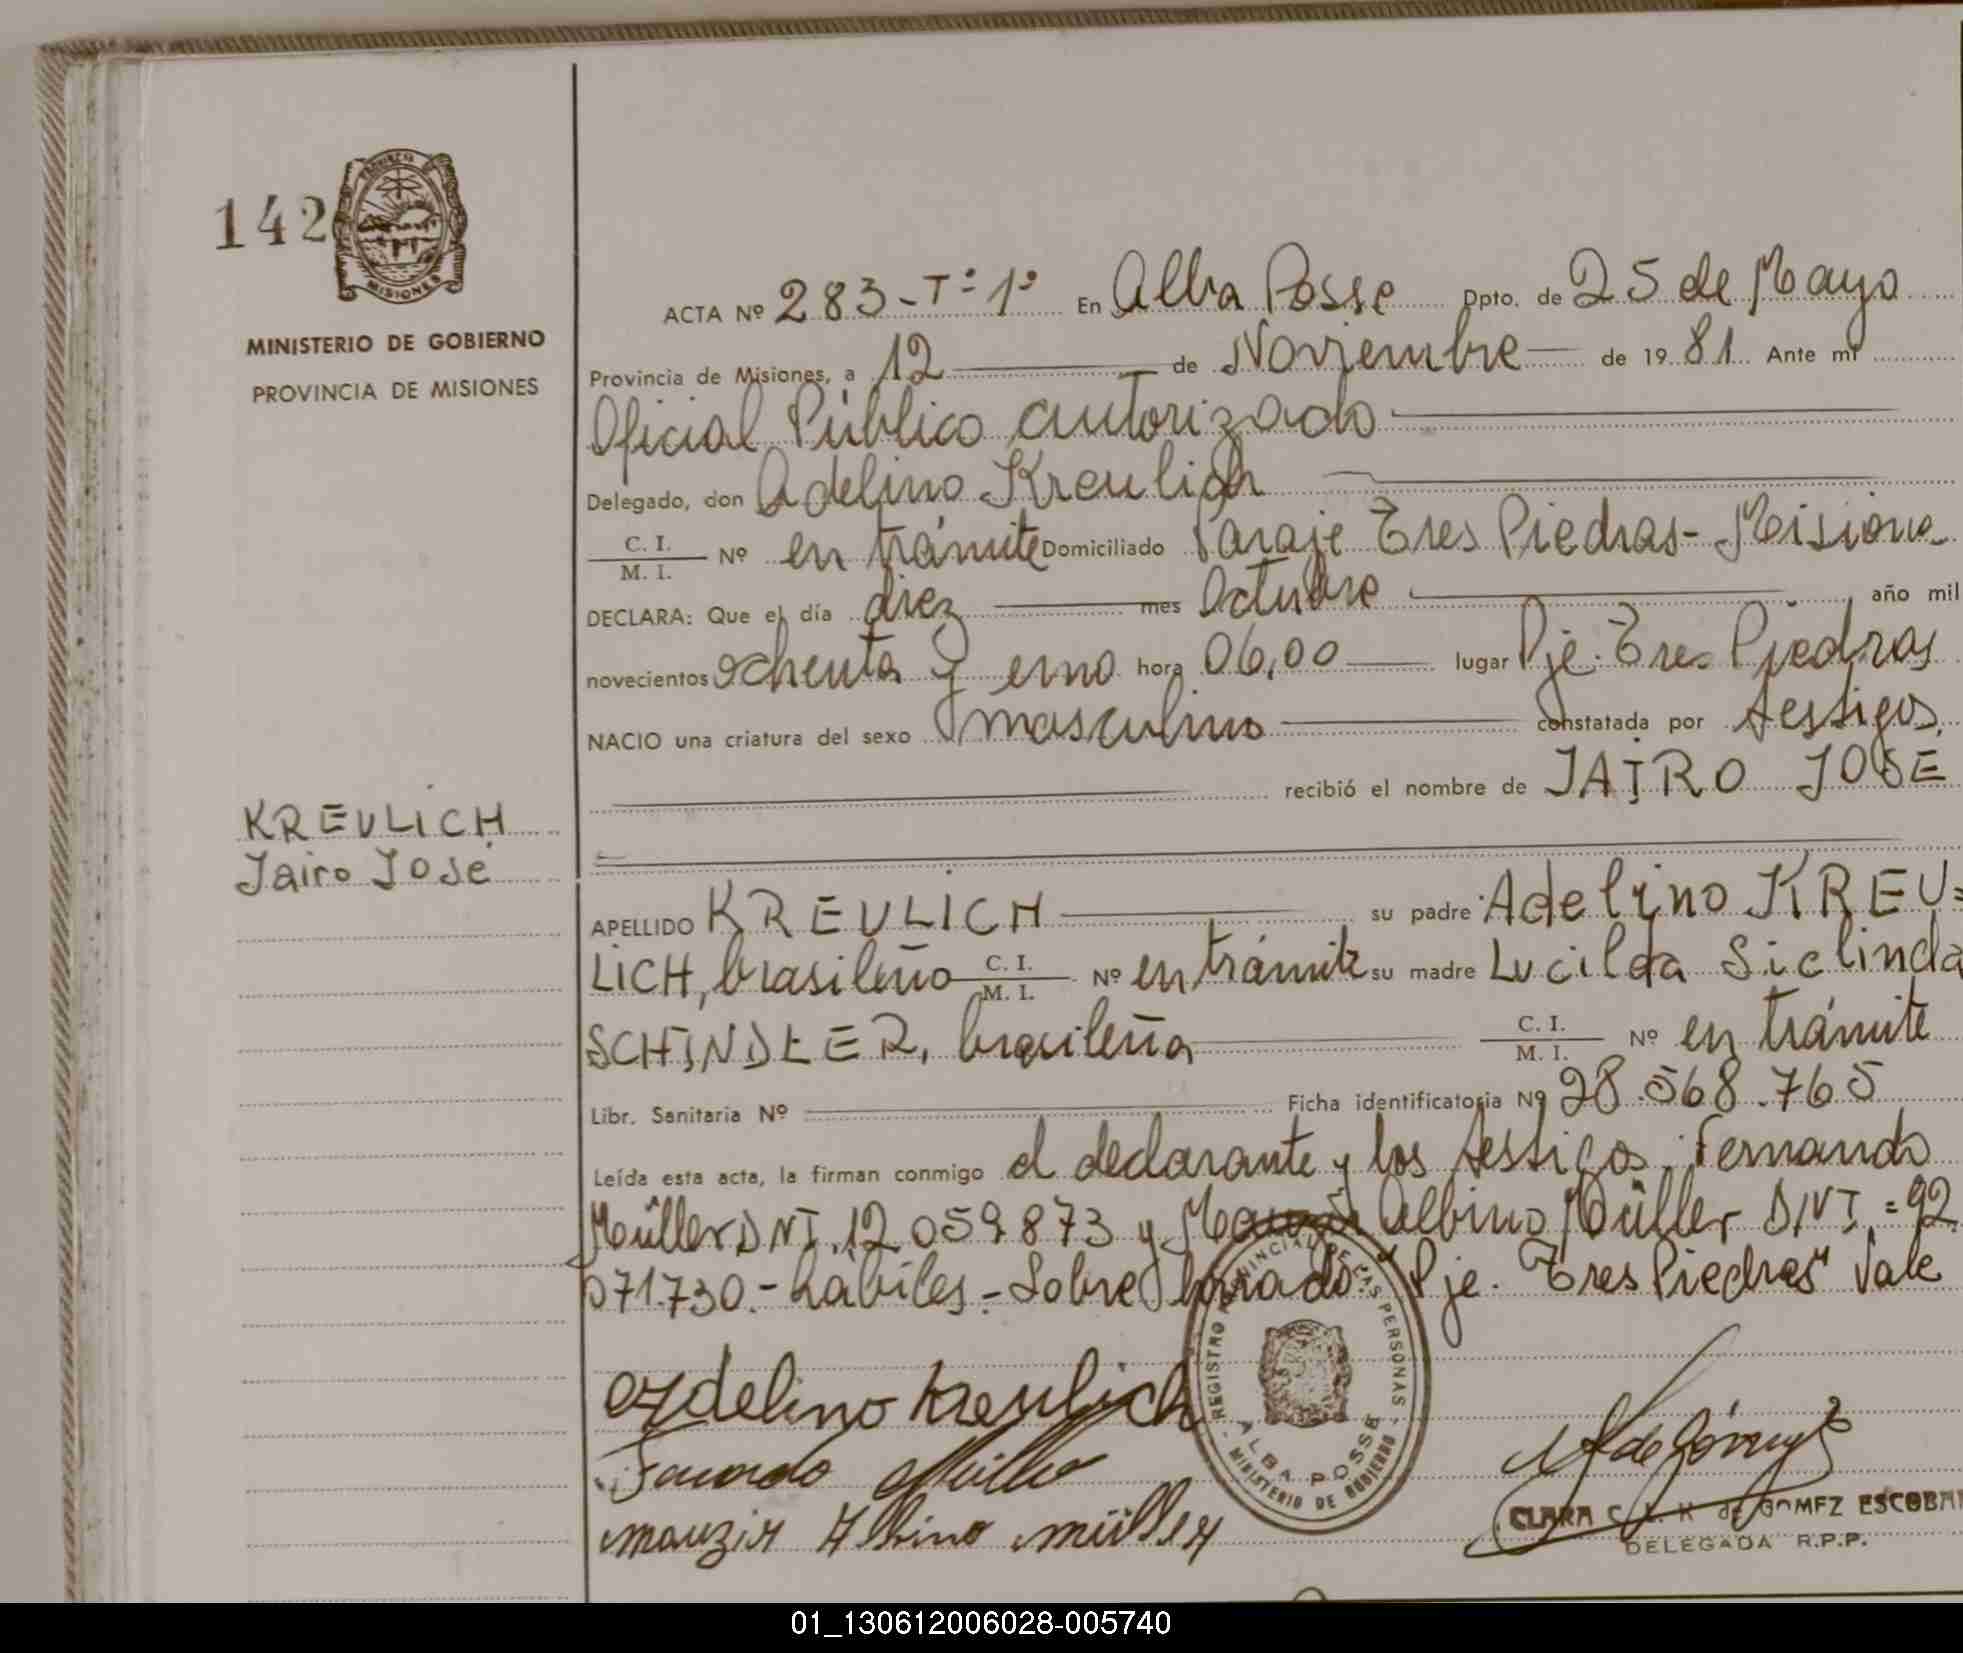 142
PROVINCIA DE
MISIONES
MINISTERIO DE GOBIERNO
PROVINCIA DE MISIONES
KREULICH
Jairo José
ACTA Nº 283-Tº 1º En Alba Posse Dpto. de 25 de Mayo
Provincia de Misiones, a 12 de Noviembre de 19 81 Ante mí
Oficial Público autorizado
Delegado, don Adelino Kreulich
C. I. / M. I. Nº en trámite Domiciliado Paraje Tres Piedras- Misiones
DECLARA: Que el día diez mes Octubre año mil
novecientos ochenta y uno hora 06,00 lugar Pje. Tres Piedras
NACIO una criatura del sexo masculino constatada por testigos,
recibió el nombre de JAIRO JOSE
APELLIDO KREULICH su padre Adelino KREU=
LICH, brasileño C. I. / M. I. Nº en trámite su madre Lucilda Siclinda
SCHINDLER, brasileña C. I. / M. I. Nº en trámite
Libr. Sanitaria Nº Ficha identificatoria Nº 28.568.765
Leída esta acta, la firman conmigo el declarante y los testigos: Fernando
Müller DNI. 12.059.873 y Albino Müller DNI.=92.
071.730.- hábiles.- Sobre borrado: "Pje. Tres Piedras" Vale
Adelino Kreulich
Müller
Albino müller
REGISTRO PROVINCIAL DE LAS PERSONAS
ALBA POSSE
MINISTERIO DE GOBIERNO
CLARA C. L. K de GOMEZ ESCOBAR
DELEGADA R.P.P.
01_130612006028-005740